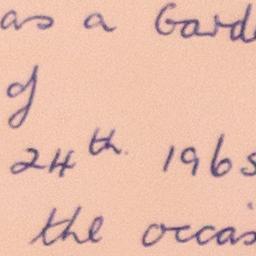 as a Gard
of
24th. 1965
the occas